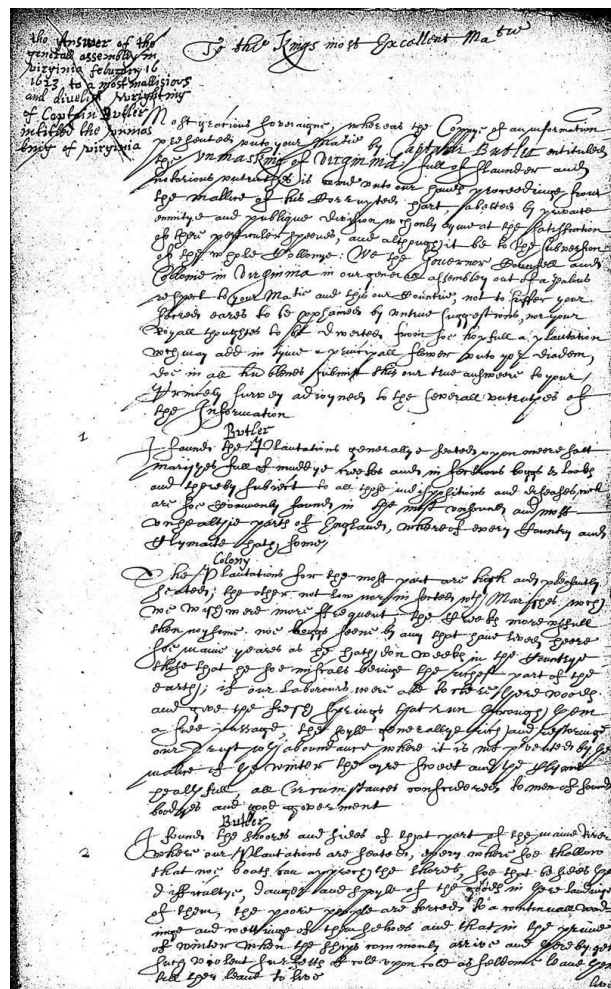 the Answer of the
generall assembly in
virginia february 16
1623 to a most mallisious
and divelish wrighting
of Captain Butler
intitled the unmas
king of virginia
To the Kings most Excellent Matie
Most gratious soveraigne, whereas the Coppye of an information
presented unto your Matie by Captaine Butler entituled
the unmasking of virginia, full of slaunder and
notorious untruthes is come unto our hands proceedinge from
the mallice of his corrupted hart, abetted by private
enmitye and publique division wch only ayme at the satisfaction
of there perticuler spleens, and although it be to the subversion
of the whole Collonye: We the Governor Counsell and
Collonie in virginia in our generall assembley out of a
respect to your Matie and this our Countrie, not to suffer your
sacred eares to be prophaned by untrue suggestions, nor your
Royall thoughts to be diverted from soe hopfull a plantation
wch may add in tyme a principall flower unto your diadem,
doe in all humblenes submitt this our true answeere to your
Princely survey adioyned to the severall untruthes of
the Information
Butler
1 I found the Plantations generallye seated upon meere salt
marishes full of muddye creekes and in boggs & lakes
and thereby subiect to all those indispositions and diseases, wch
are soe commonly found in the most unsound and most
unhealthie parts of England, whereof every Country and
Clymate hath some,
Colony
The Plantations for the most part are high and plesantly
seated; the other not low nor infested wth Marshes, wch
we wish were more ffrequent, the Creeks more usefull
then noysome. noe boggs seene by any that have lived heere
soe manie yeares as he hath don weeks in the Countrye
those that he soe miscals beinge the richest part of the
earth; if our Labourours were able to cleere there woods
and give the fresh springs that run through them
a free passage, the soyle generallye rich and restoringe
our trust wth aboundance where it is not prevented by the
malice of the winter the ayre sweet and the Clyme
healthfull, all Circumstances considered to men of sound
bodyes and good goverment
Butler
2 I found the shoores and sides of that part of the maine River
where our Plantations are seated, every where soe shallow
that noe boats can approch the shores, soe that besides the
difficultye, danger and spoyle of the goods in there landinge
of them, the poore people are forced to a continuall wad
inge and wettinge of themselves and that in the prime
of winter when the shipps commonly arrive and thereby gett
such violent surfetts of cold upon cold as seldome leave them
till they leave to live